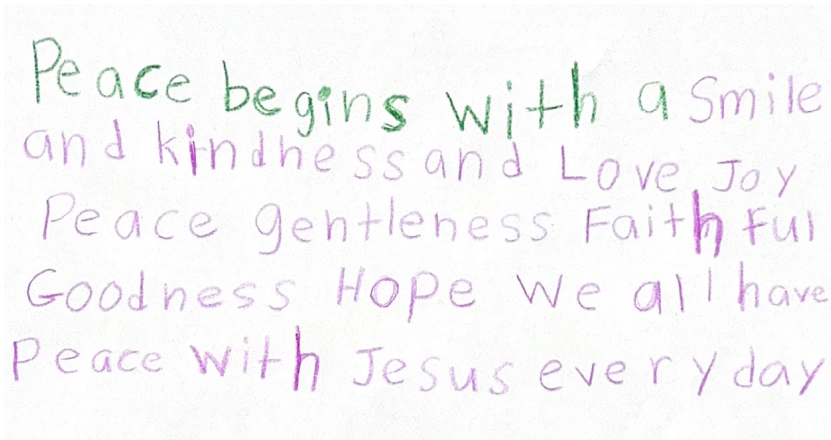 Peace begins with a Smile
and kindness and Love, Joy
Peace gentleness Faith Ful
Goodness Hope We all have
Peace with Jesus every day